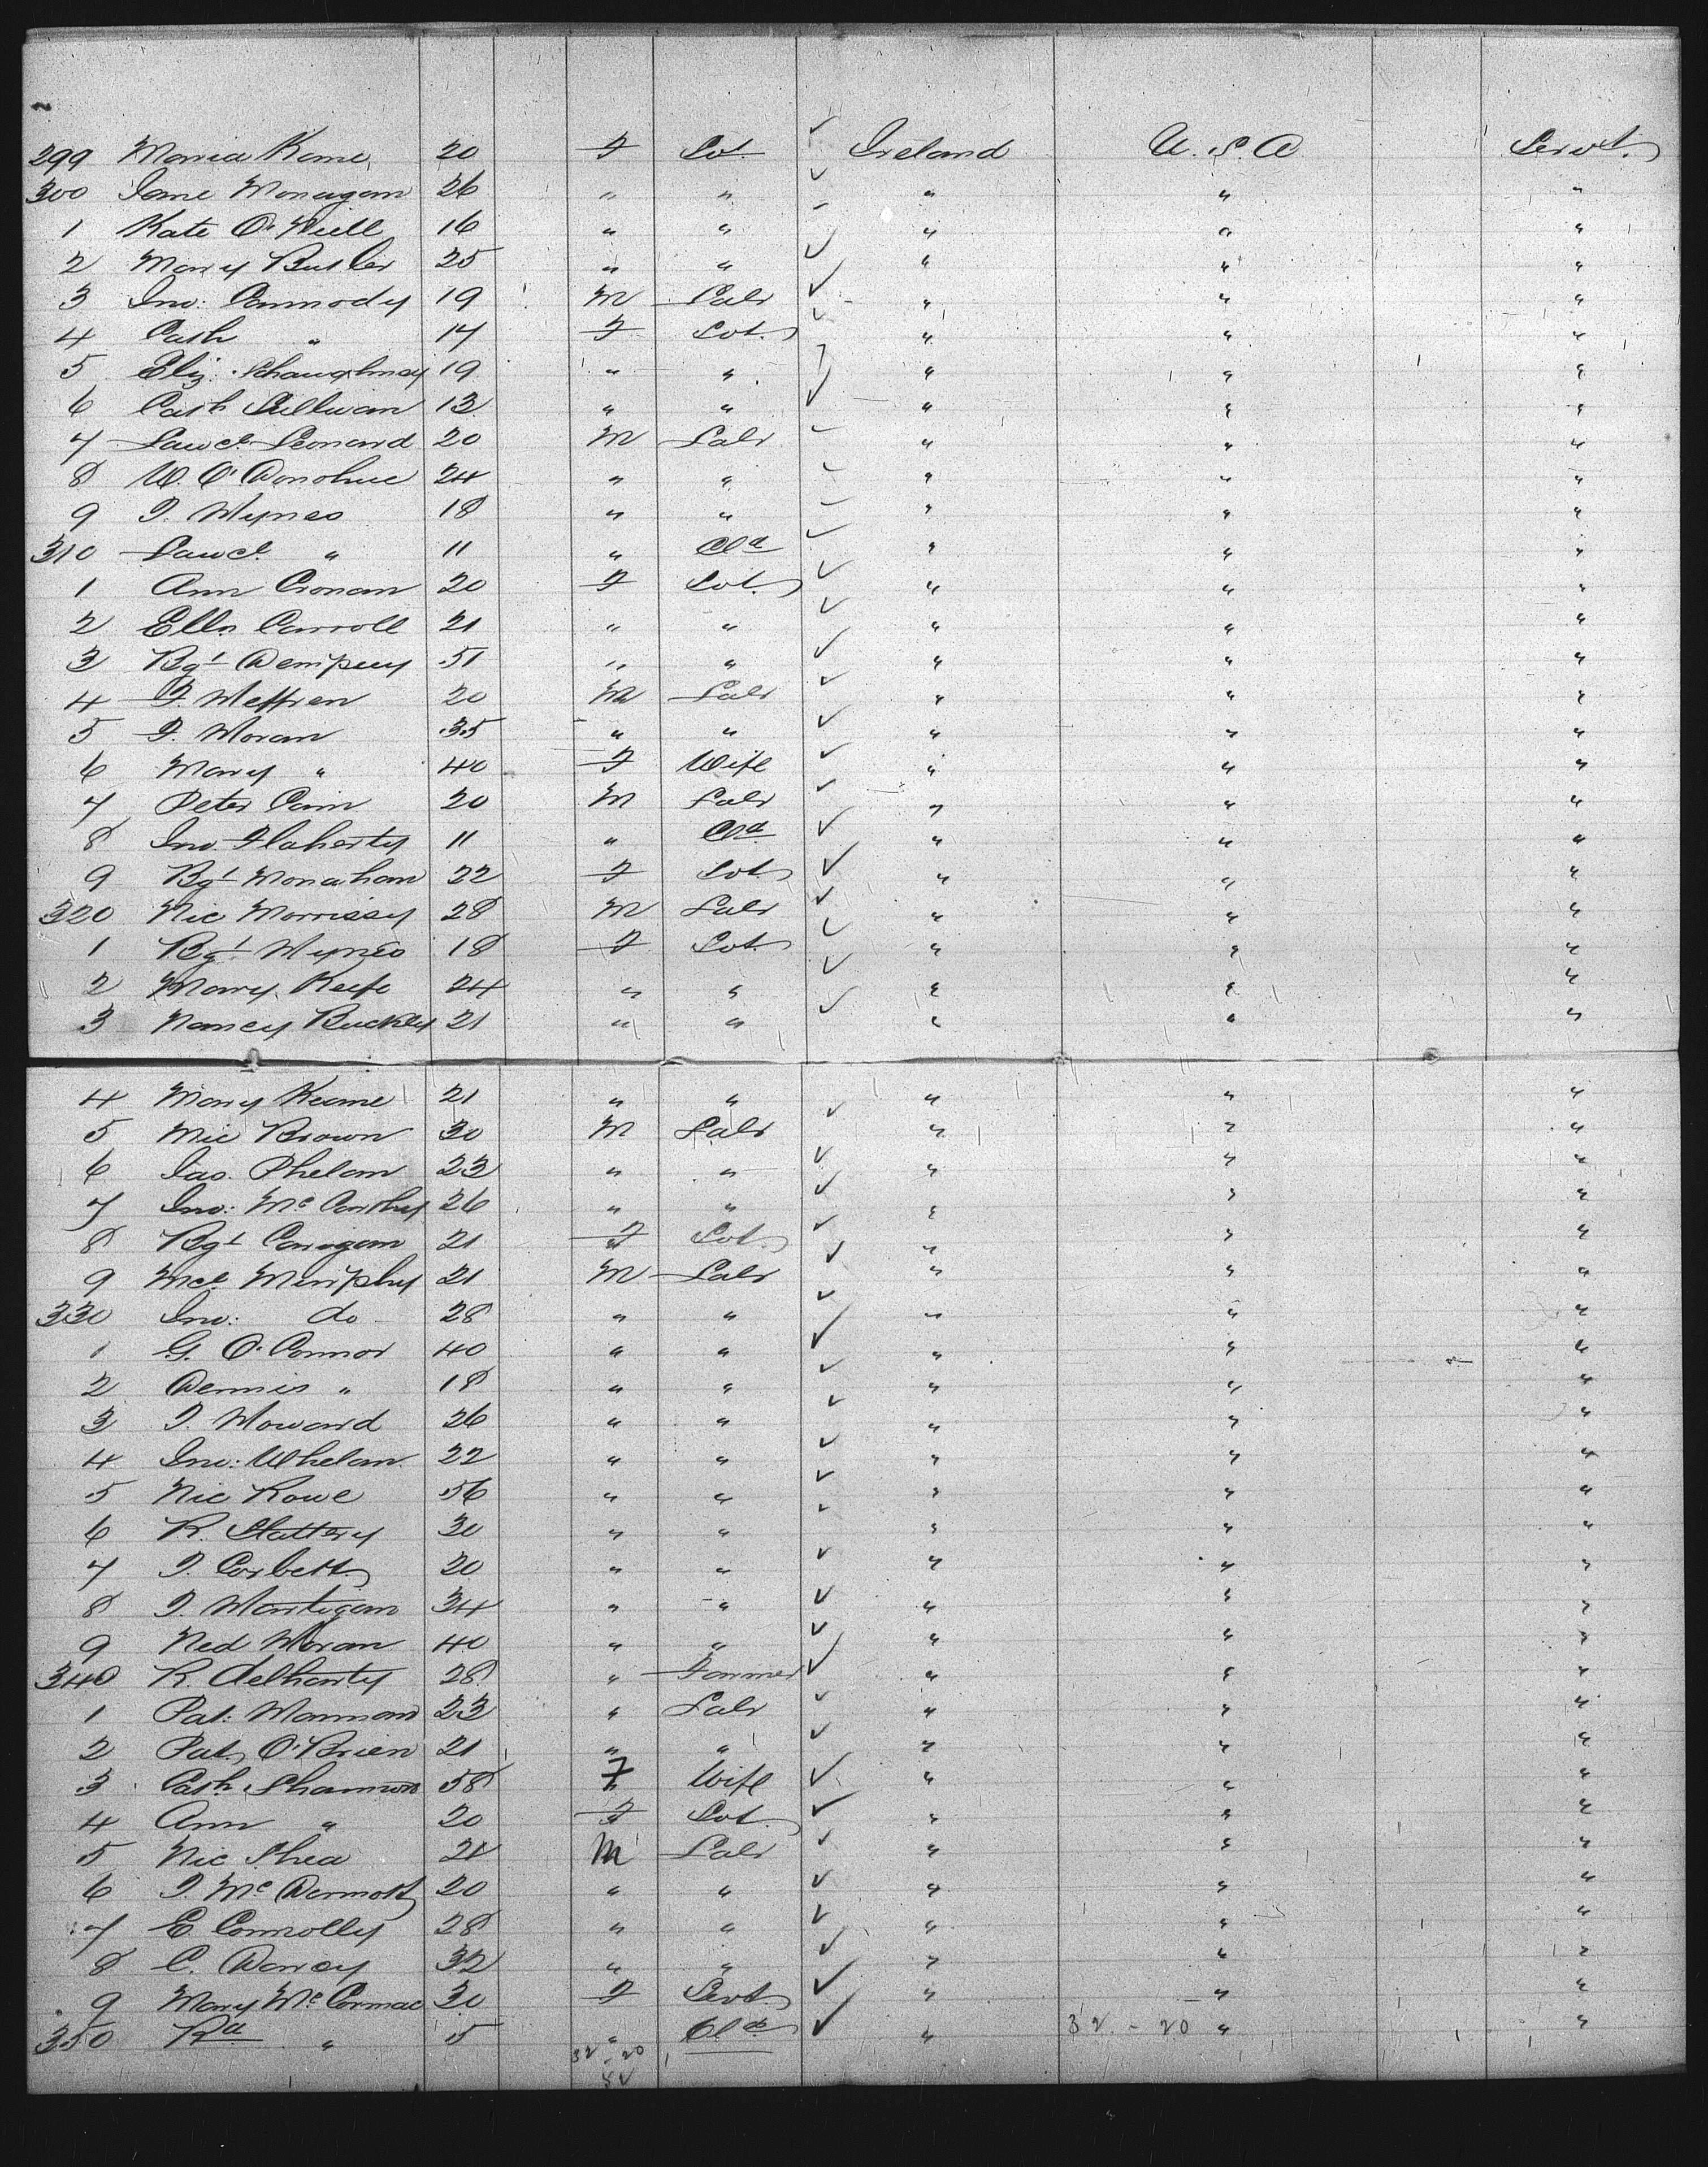 299 Maria Kane 20 F Svt. ✓ Ireland U.S.A Servt.
300 Jane Monagan 26 " " ✓ " " "
1 Kate O'Neill 16 " " " " "
2 Mary Butler 25 " " ✓ " " "
3 Jno: Carmody 19 M Labr ✓ " " "
4 Cath " 17 F Svt. ✓ " " "
5 Eliz. Shaughnesy 19 " " ✓ " " "
6 Cath Sullivan 13 " " ✓ " " "
7 Lawce Leonard 20 M Labr " " "
8 W. O'Donohue 24 " " " " "
9 T. Hynes 18 " " " " "
310 Lawce " 11 " Cld ✓ " " "
1 Ann Cronan 20 F Svt. ✓ " " "
2 Elln Carroll 21 " " ✓ " " "
3 Bgt Dempsey 51 " " ✓ " " "
4 20 M Labr ✓ " " "
5 T. Moran 35 " " ✓ " " "
6 Mary " 40 F Wife ✓ " " "
7 Peter Cain 20 M Labr ✓ " " "
8 Jno. Flaherty 11 " Cld ✓ " " "
9 Bgt Monahan 22 F Svt. ✓ " " "
320 Mic Morrissy 28 M Labr ✓ " " "
1 Bgt Hynes 18 F Svt. ✓ " " "
2 Mary Keefe 24 " " ✓ " " "
3 Nancy Buckley 21 " " ✓ " " "
4 Mary Keane 21 " " " " "
5 Mic Brown 30 M Labr ✓ " " "
6 Jas. Phelan 23 " " ✓ " " "
7 Jno: McCarthy 26 " " ✓ " " "
8 Bgt Carigan 21 F Svt. ✓ " " "
9 Mcl Murphy 21 M Labr ✓ " " "
330 Jno: do 28 " " ✓ " " "
1 G. O'Connor 40 " " ✓ " " "
2 Dennis " 18 " " ✓ " " "
3 T. Howard 26 " " ✓ " " "
4 Jno: Whelan 22 " " ✓ " " "
5 Nic Rowe 56 " " ✓ " " "
6 R. Slattery 30 " " ✓ " " "
7 T. Corbett 20 " " ✓ " " "
8 T. Hartigan 34 " " ✓ " " "
9 Ned Moran 40 " " ✓ " " "
340 R. Delhanty 28 " Farmer ✓ " " "
1 Pat: Hannan 23 " Labr ✓ " " "
2 Pat. O'Brien 21 " " ✓ " " "
3 Cath. Shannon 58 F Wife ✓ " " "
4 Ann " 20 F Svt. ✓ " " "
5 Mic Shea 21 M Labr ✓ " " "
6 T. McDermott 20 " " ✓ " " "
7 E Connolly 28 " " ✓ " " "
8 C. Darcy 32 " " ✓ " " "
9 Mary McCormac 30 F Servt. ✓ " " "
350 Rd " 5 " Cld ✓ " 32 - 20 " "
32 - 20
52